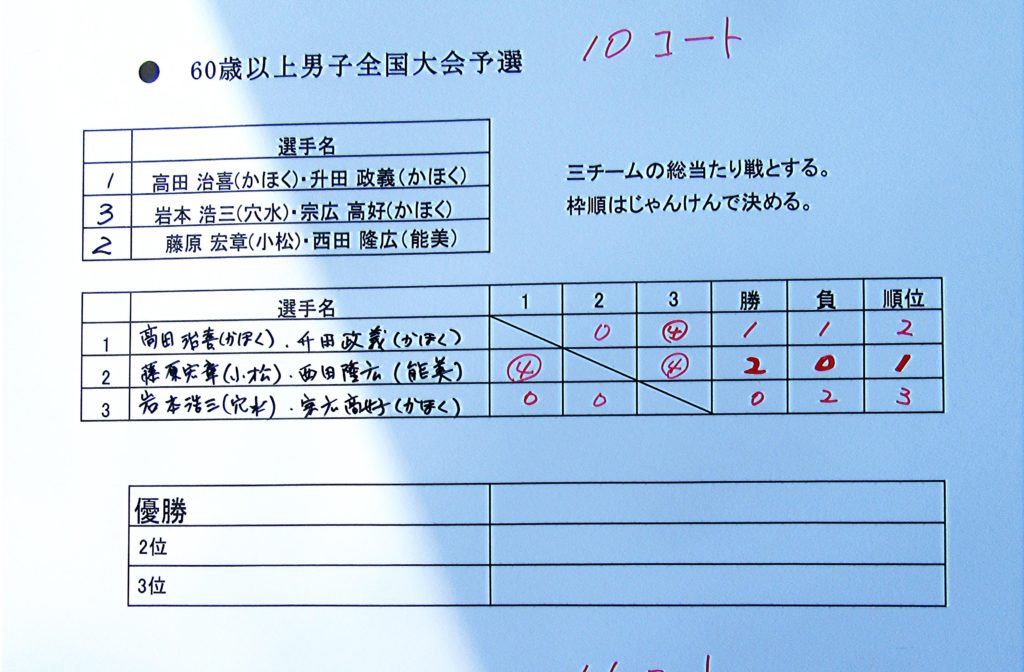 10コート
● 60歳以上男子全国大会予選
選手名
1 高田 治喜(かほく)・升田 政義(かほく)
3 岩本 浩三(穴水)・宗広 高好(かほく)
2 藤原 宏章(小松)・西田 隆広(能美)
三チームの総当たり戦とする。
枠順はじゃんけんで決める。
選手名 1 2 3 勝 負 順位
1 高田 治喜(かほく)・升田 政義(かほく) 0 ④ 1 1 2
2 藤原宏章(小松)・西田隆広(能美) ④ ④ 2 0 1
3 岩本浩三(穴水)・宗広高好(かほく) 0 0 0 2 3
優勝
2位
3位